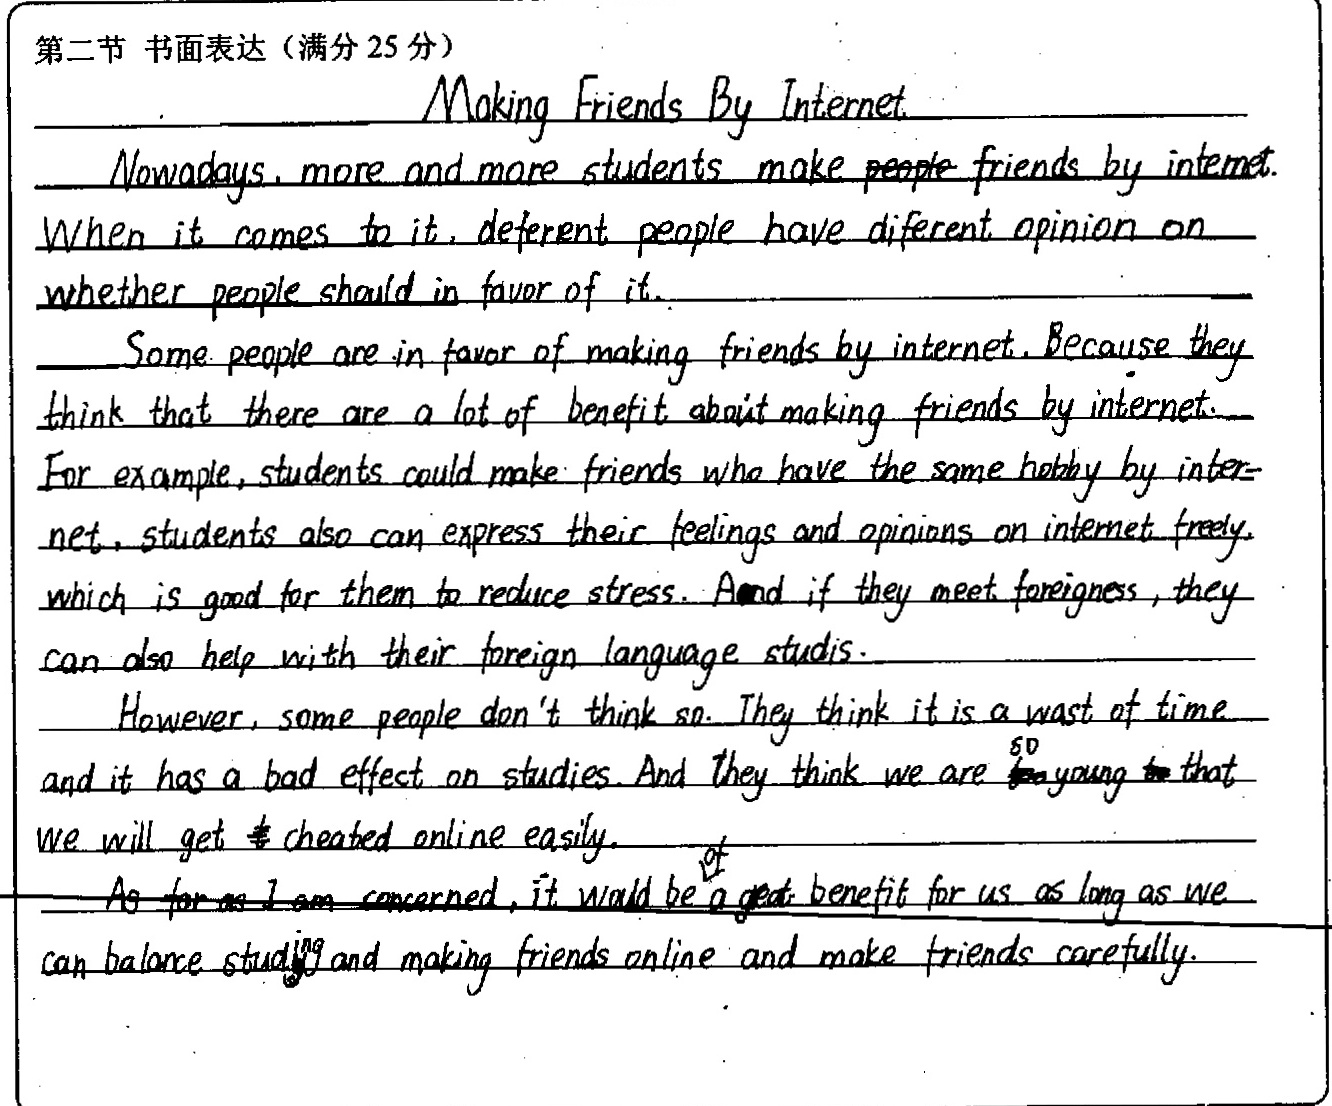 第二节 书面表达（满分 25 分）
Making Friends By Internet
Nowadays, more and more students make people friends by internet.
When it comes to it, deferent people have diferent opinion on
whether people should in favor of it.
Some people are in favor of making friends by internet. Because they
think that there are a lot of benefit about making friends by internet.
For example, students could make friends who have the same hobby by inter-
net, students also can express their feelings and opinions on internet freely,
which is good for them to reduce stress. And if they meet foreigness, they
can also help with their foreign language studis.
However, some people don't think so. They think it is a wast of time
and it has a bad effect on studies. And they think we are so young that
we will get cheated online easily.
As far as I am concerned, it would be of a great benefit for us as long as we
can balance studing and making friends online and make friends carefully.